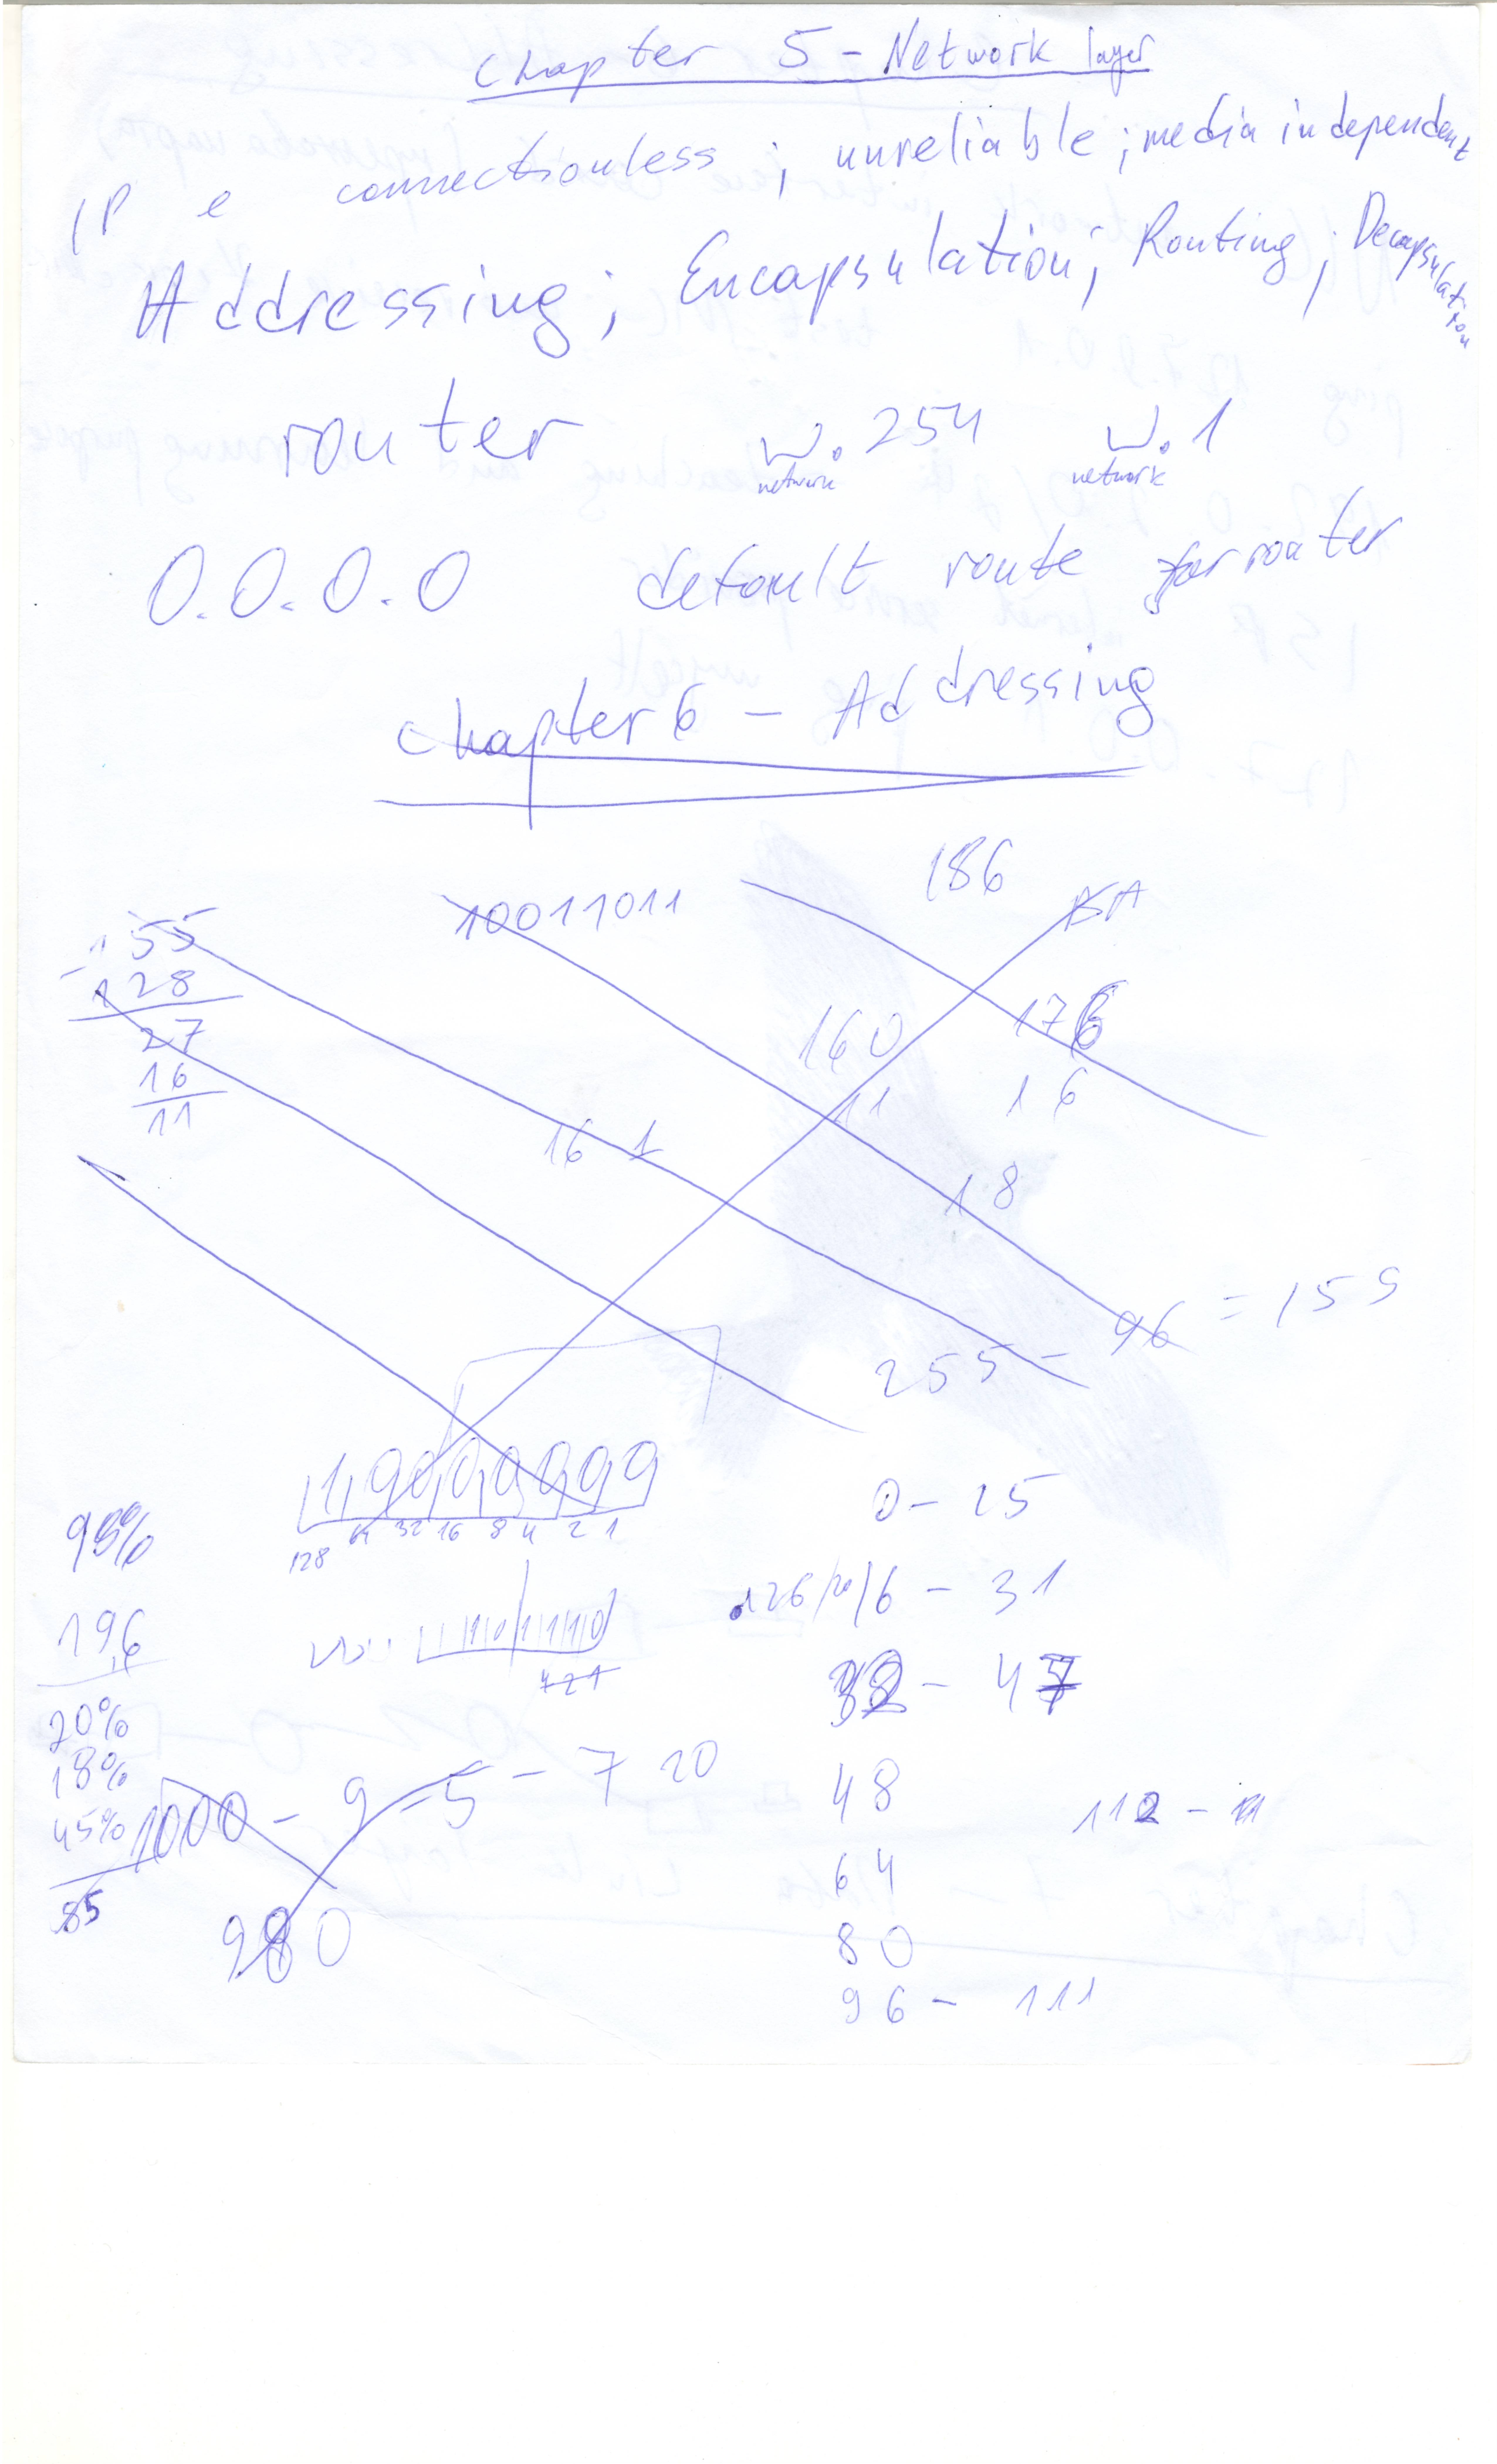 Chapter 5 - Network layer
IP e connectionless ; unreliable ; media independent
Addressing ; Encapsulation ; Routing ; Decapsulation
router w.254 w.1
network network
0.0.0.0 default route for router
Chapter 6 - Addressing
186
155 10011011
- 128
27 160 176
16 11 16
11 16 1
18
255 - 96 = 155
128 64 32 16 8 4 2 1
98% 0 - 15
126/20/6 - 31
19,6 32 - 47
4 2 1
20%
18% 48 112 -
45% 1000 - 9 - 5 - 7 20
85 64
980 80
96 - 111